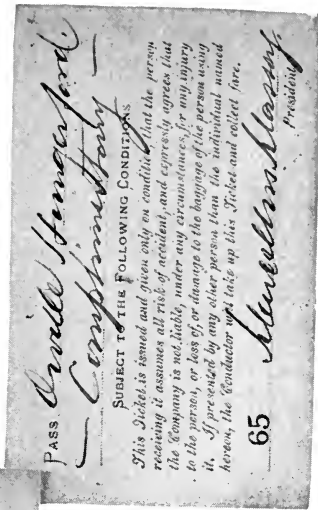 PASS Orville Hungerford.
— Complimentary —
SUBJECT TO THE FOLLOWING CONDITIONS
This Ticket is issued and given only on condition that the person
receiving it assumes all risk of accident, and expressly agrees that
the Company is not liable, under any circumstances, for any injury
to the person, or loss of, or damage to the baggage of the person using
it. If presented by any other person than the individual named
hereon, the Conductor will take up this Ticket and collect fare.
65
President.